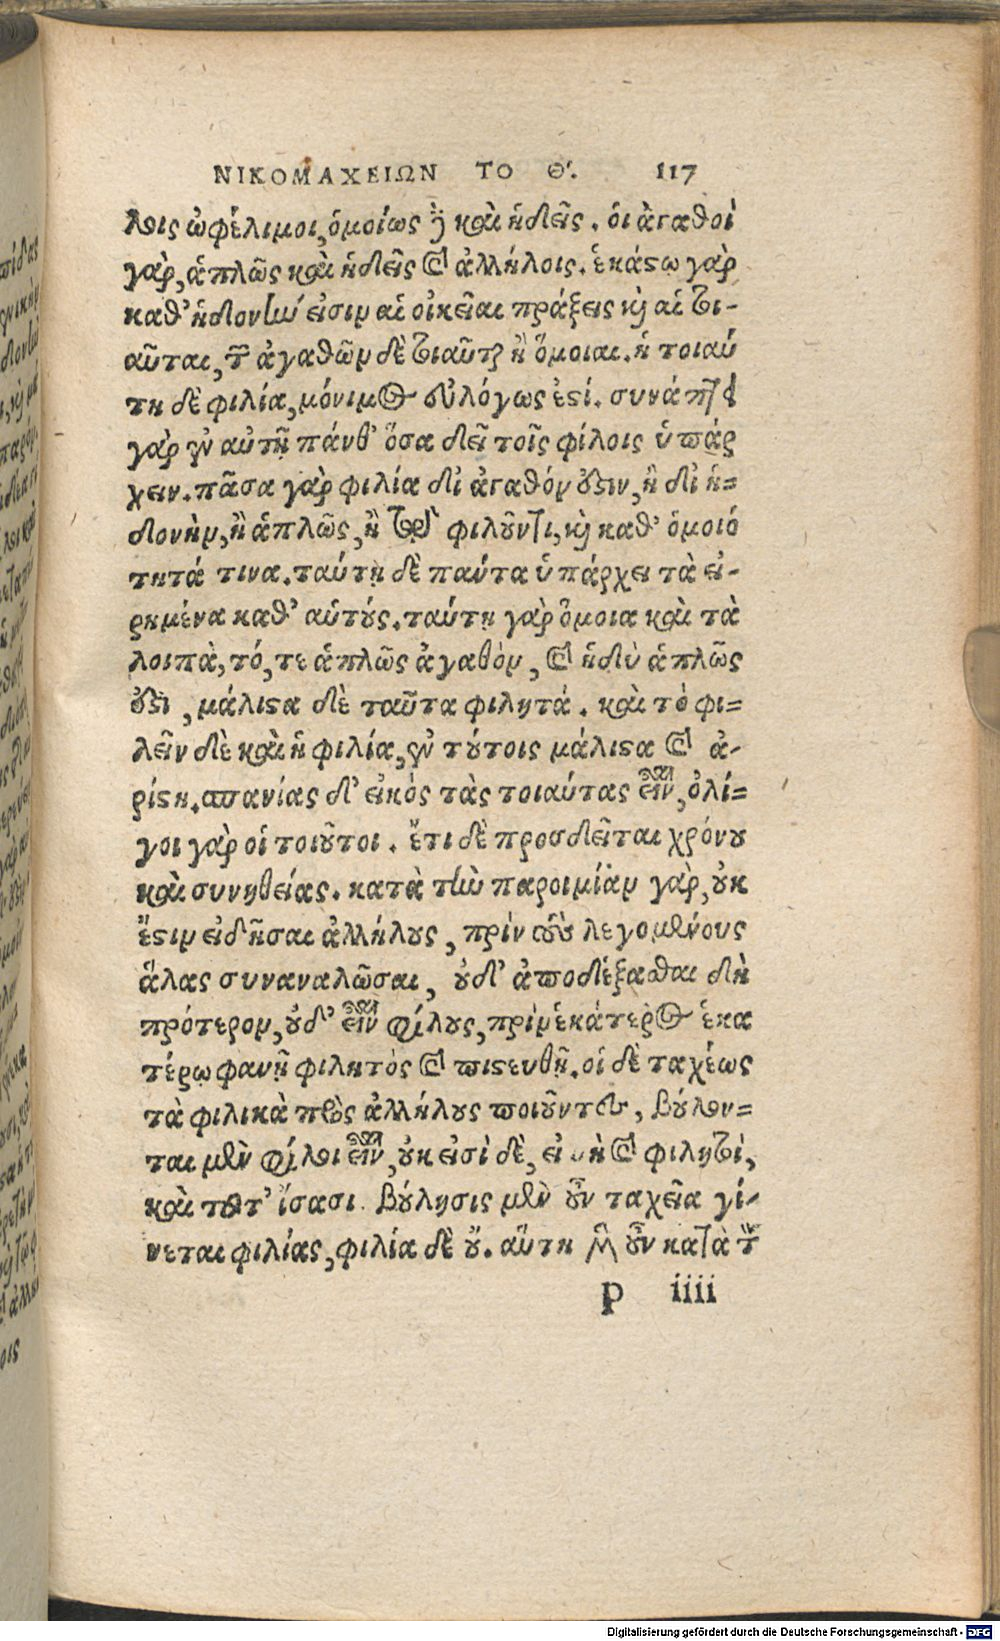 ΝΙΚΟΜΑΧΕΙΩΝ ΤΟ Θ'. 117
λοις ὠφέλιμοι, ὁμοίως δὲ καὶ ἡδεῖς. ὁι ἀγαθοὶ
γὰρ, ἁπλῶς καὶ ἡδεῖς καὶ ἀλλήλοις. ἑκάστω γὰρ
καθ' ἡδονὴν εἰσιν αἱ οἰκεῖαι πράξεις καὶ αἱ τοι-
αῦται, τῶν ἀγαθῶν δὲ τοιαῦται ἢ ὅμοιαι. ἡ τοιαύ
τη δὲ φιλία, μόνιμος εὐλόγως ἐστί. συνάπτει
γὰρ ἐν αὐτῇ πάνθ' ὅσα δεῖ τοῖς φίλοις ὑπάρ
χειν. πᾶσα γὰρ φιλία δι' ἀγαθόν ὅστιν, ἢ δι' ἡ-
δονὴν, ἢ ἁπλῶς, ἢ τῷ φιλοῦντι, καὶ καθ' ὁμοιό
τητά τινα. ταύτῃ δὲ πάντα ὑπάρχει τὰ εἰ-
ρημένα καθ' αὑτούς. ταύτῃ γὰρ ὅμοια καὶ τὰ
λοιπὰ, τό, τε ἁπλῶς ἀγαθὸν, καὶ ἡδὺ ἁπλῶς
ὅστι, μάλιστα δὲ ταῦτα φιλητά. καὶ τὸ φι-
λεῖν δὲ καὶ ἡ φιλία, ἐν τούτοις μάλιστα καὶ ἀ-
ρίστη. σπανίας δ' εἰκὸς τὰς τοιαύτας εἶναι, ὀλί-
γοι γὰρ οἱ τοιοῦτοι. ἔτι δὲ προσδεῖται χρόνου
καὶ συνηθείας. κατὰ τὴν παροιμίαν γὰρ, οὐκ
ἔστιν εἰδῆσαι ἀλλήλους, πρὶν τοὺς λεγομένους
ἅλας συναναλῶσαι, οὐδ' ἀποδέξασθαι δὴ
πρότερον, οὐδ' εἶναι φίλους, πρὶν ἑκάτερος ἑκα
τέρῳ φανῇ φιλητὸς καὶ πιστευθῇ. οἱ δὲ ταχέως
τὰ φιλικὰ πρὸς ἀλλήλους ποιοῦντες, βούλον-
ται μὲν φίλοι εἶναι, οὐκ εἰσὶ δὲ, εἰ μὴ καὶ φιλητοὶ,
καὶ τοῦτ' ἴσασι. βούλησις μὲν οὖν ταχεῖα γί-
νεται φιλίας, φιλία δὲ οὔ. αὕτη μὲν οὖν κατὰ τὸν
p iiii
Digitalisierung gefördert durch die Deutsche Forschungsgemeinschaft - DFG